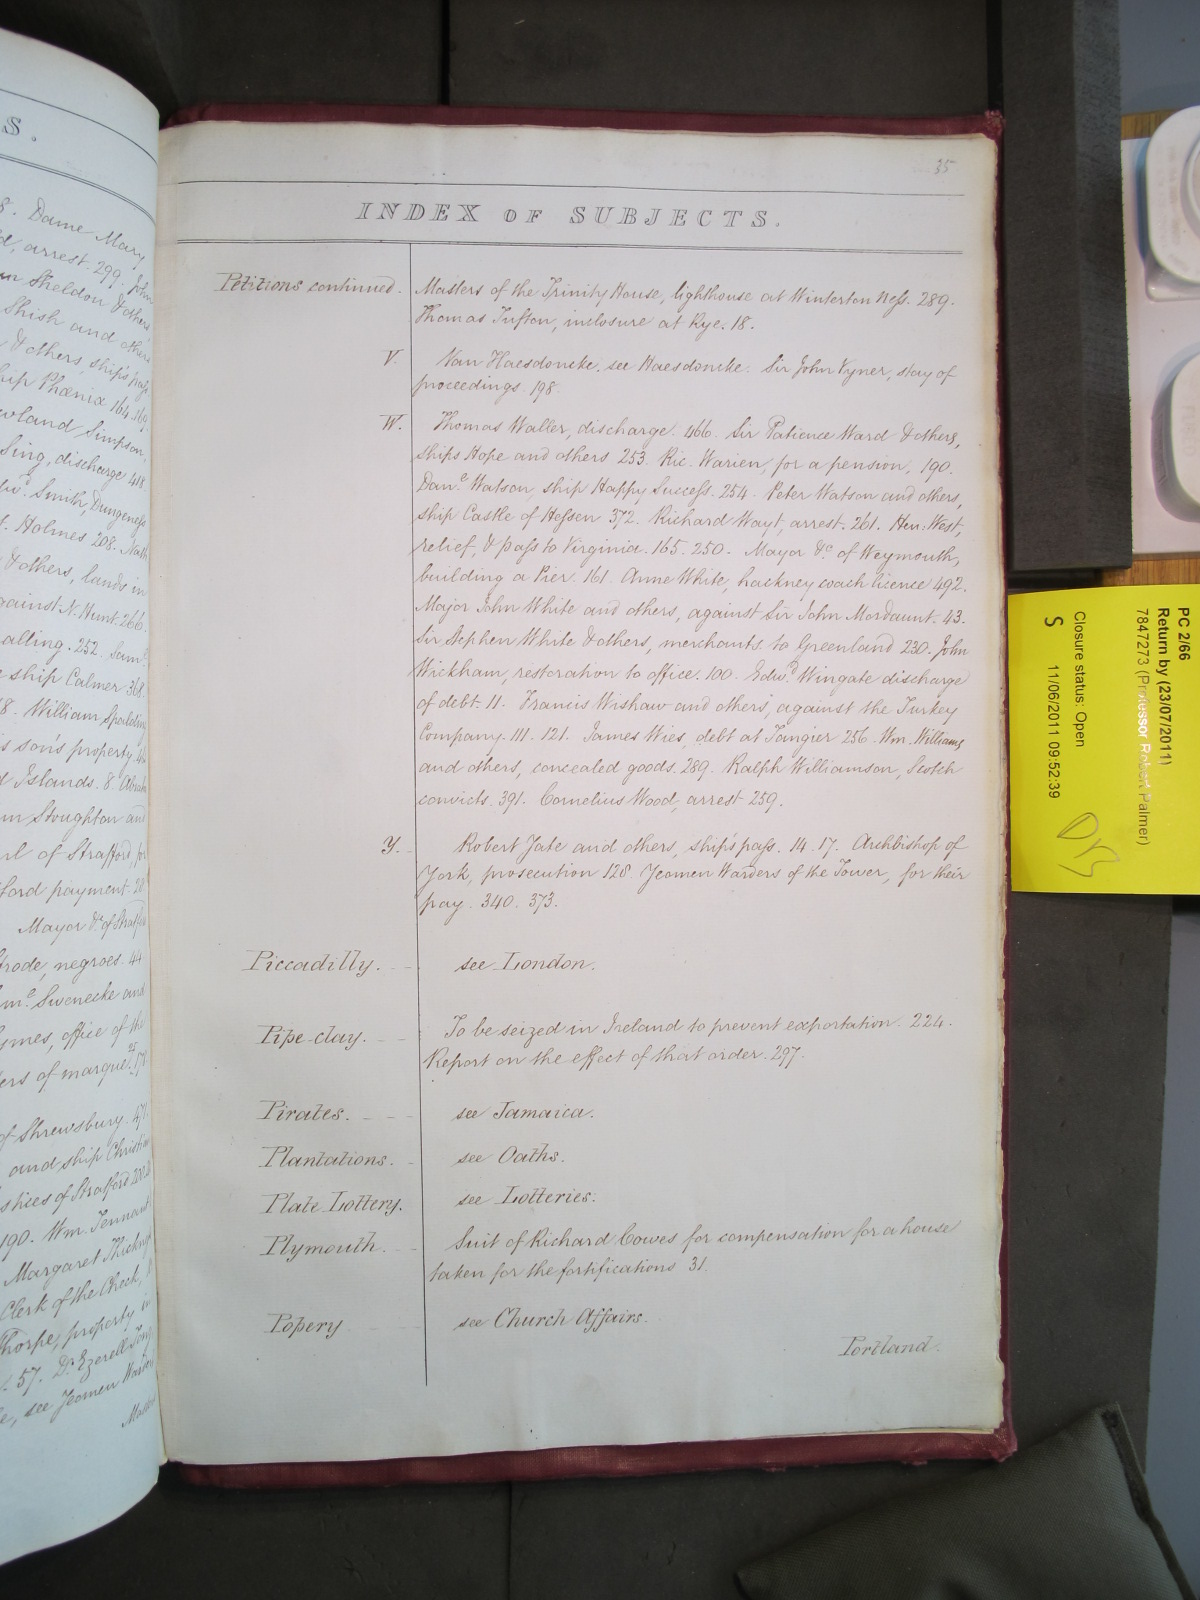 S.
8. Dame Mary
arrest. 299. John
Sheldon & others
Shish and others
& others, ship's pass
ship Phœnix 164. 169.
Newland Simpson,
Sing, discharge 418
Smith, Dungeness
Holmes 208. Nath
& others, lands in
against N. Hunt. 266.
252. Saml
ship Calmer 368.
8. William Spalding
his son's property.
Islands. 8. Abraham
Stoughton and
Earl of Strafford, for
payment. 20
Mayor &c. of Stratford
Strode, negroes. 44
Swenecke and
office of the
letters of marque.
of Shrewsbury. 471.
and ship Christian
190. Wm. Tennant
Margaret
Clerk of the Check,
Thorpe, property in
57. Dr. Ezerell Tong
see Yeomen Warders
35
INDEX OF SUBJECTS.
Petitions continued. Masters of the Trinity House, lighthouse at Winterton Ness. 289.
Thomas Tufton, inclosure at Rye. 18.
V. Van Haesdoncke, see Haesdoncke. Sir John Vyner, stay of
proceedings. 198.
W. Thomas Waller, discharge. 466. Sir Patience Ward & others,
ships Hope and others 253. Ric. Warien, for a pension, 190.
Danl. Watson, ship Happy Success. 254. Peter Watson and others,
ship Castle of Hessen 372. Richard Wayt, arrest. 261. Hen. West,
relief, & pass to Virginia. 165. 250. Mayor &c. of Weymouth,
building a Pier. 161. Anne White, hackney coach licence 492.
Major John White and others, against Sir John Mordaunt. 43.
Sir Stephen White & others, merchants to Greenland 230. John
Wickham, restoration to office. 100. Edwd. Wingate discharge
of debt. 11. Francis Wishaw and others, against the Turkey
Company. 111. 121. James Wies, debt at Tangier 256. Wm. Williams
and others, concealed goods. 289. Ralph Williamson, Scotch
convicts. 391. Cornelius Wood, arrest 259.
Y. Robert Yate and others, ship's pass. 14. 17. Archbishop of
York, prosecution 128. Yeomen Warders of the Tower, for their
pay. 340. 373.
Piccadilly. see London.
Pipe-clay. To be seized in Ireland to prevent exportation. 224.
Report on the effect of that order. 297.
Pirates. see Jamaica.
Plantations. see Oaths.
Plate Lottery. see Lotteries.
Plymouth. Suit of Richard Cowes for compensation for a house
taken for the fortifications 31.
Popery see Church Affairs.
Portland.
PC 2/66
Return by (23/07/2011)
7847273 (Professor Robert Palmer)
Closure status: Open
S 11/06/2011 09:52:39